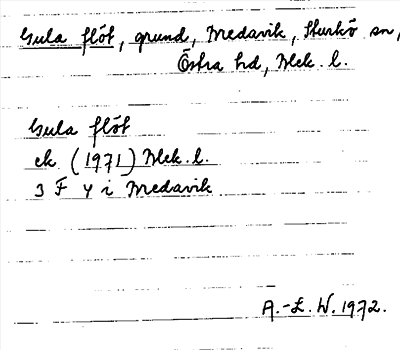 Gula flöt, grund, Medavik, Sturkö sn,
Östra hd, Blek. l.
Gula flöt
ek (1971) Blek. l.
3 F 4 i Medavik
A.-L. W. 1972.